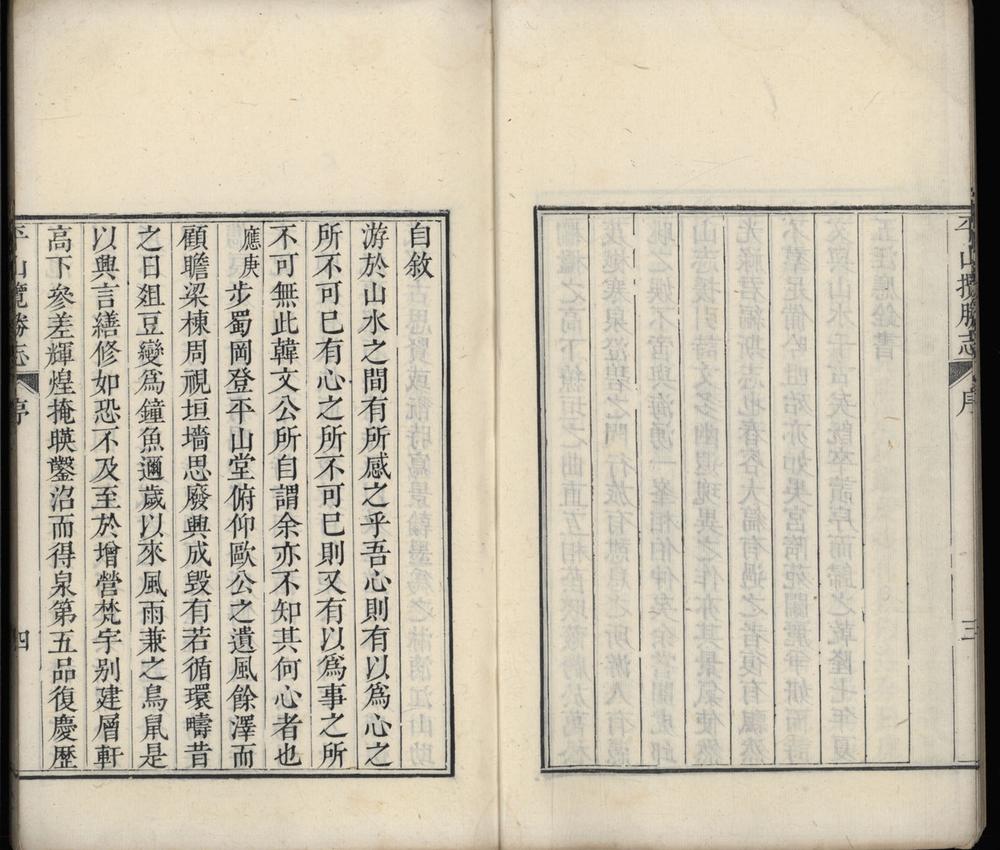 平山攬勝志
序
三
自敘
游於山水之間有所感之乎吾心則有以為心之
所不可已有心之所不可已則又有以爲事之所
不可無此韓文公所自謂余亦不知其何心者也
應庚步蜀岡登平山堂俯仰歐公之遺風餘澤而
顧瞻梁棟周視垣墻思廢興成毀有若循環疇昔
之日俎豆變爲鐘魚邇歲以來風雨兼之鳥鼠是
以興言繕修如恐不及至於增營梵宇别建層軒
高下參差輝煌掩暎鑿沼而得泉第五品復慶歷
平山攬勝志
序
四